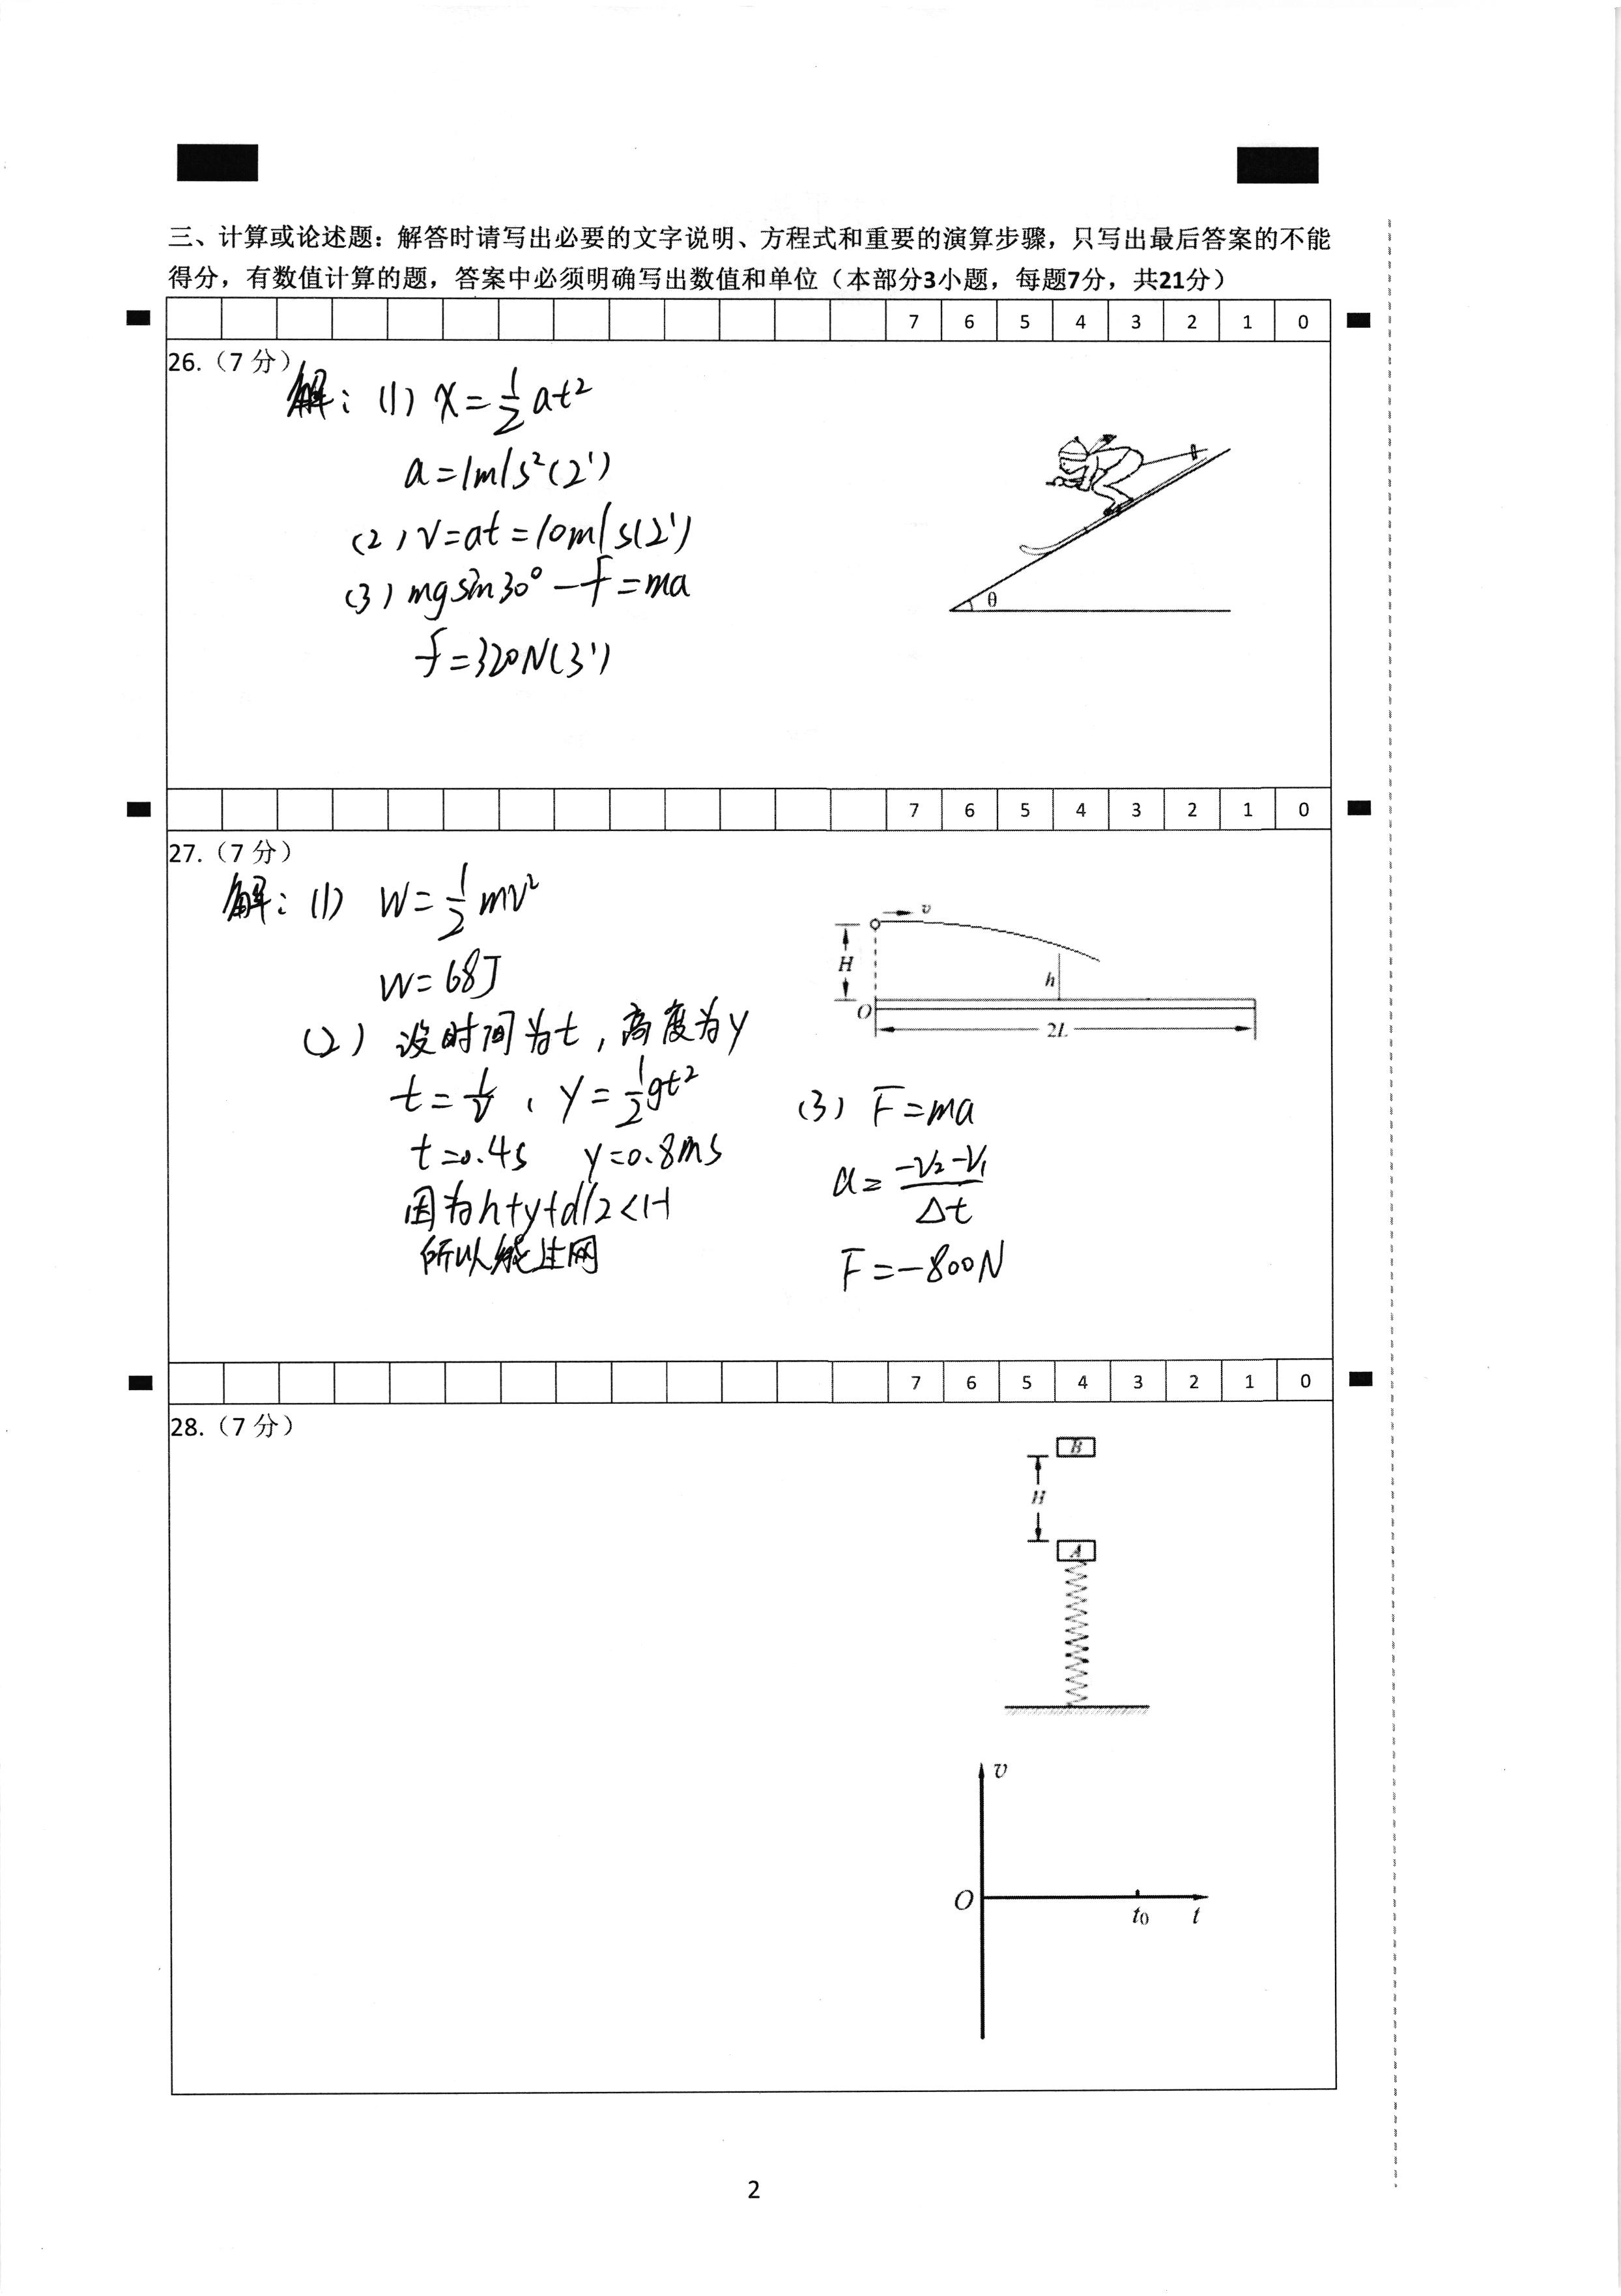 三、计算或论述题：解答时请写出必要的文字说明、方程式和重要的演算步骤，只写出最后答案的不能
得分，有数值计算的题，答案中必须明确写出数值和单位（本部分3小题，每题7分，共21分）
7 6 5 4 3 2 1 0
26.（7 分）
解：(1) x=½at²
a=1m/s²(2')
(2) v=at=10m/s(2')
(3) mgsin30°-f=ma
f=320N(3')
θ
7 6 5 4 3 2 1 0
27.（7 分）
解：(1) W=½mv²
W=68J
(2) 设时间为t，高度为y
t=L/v, y=½gt²
t=0.4s y=0.8ms
因为h+y+d/2<H
所以能过网
v
H
h
O
2L
(3) F=ma
a=(-v₂-v₁)/Δt
F=-800N
7 6 5 4 3 2 1 0
28.（7 分）
B
H
A
v
O
t₀ t
2